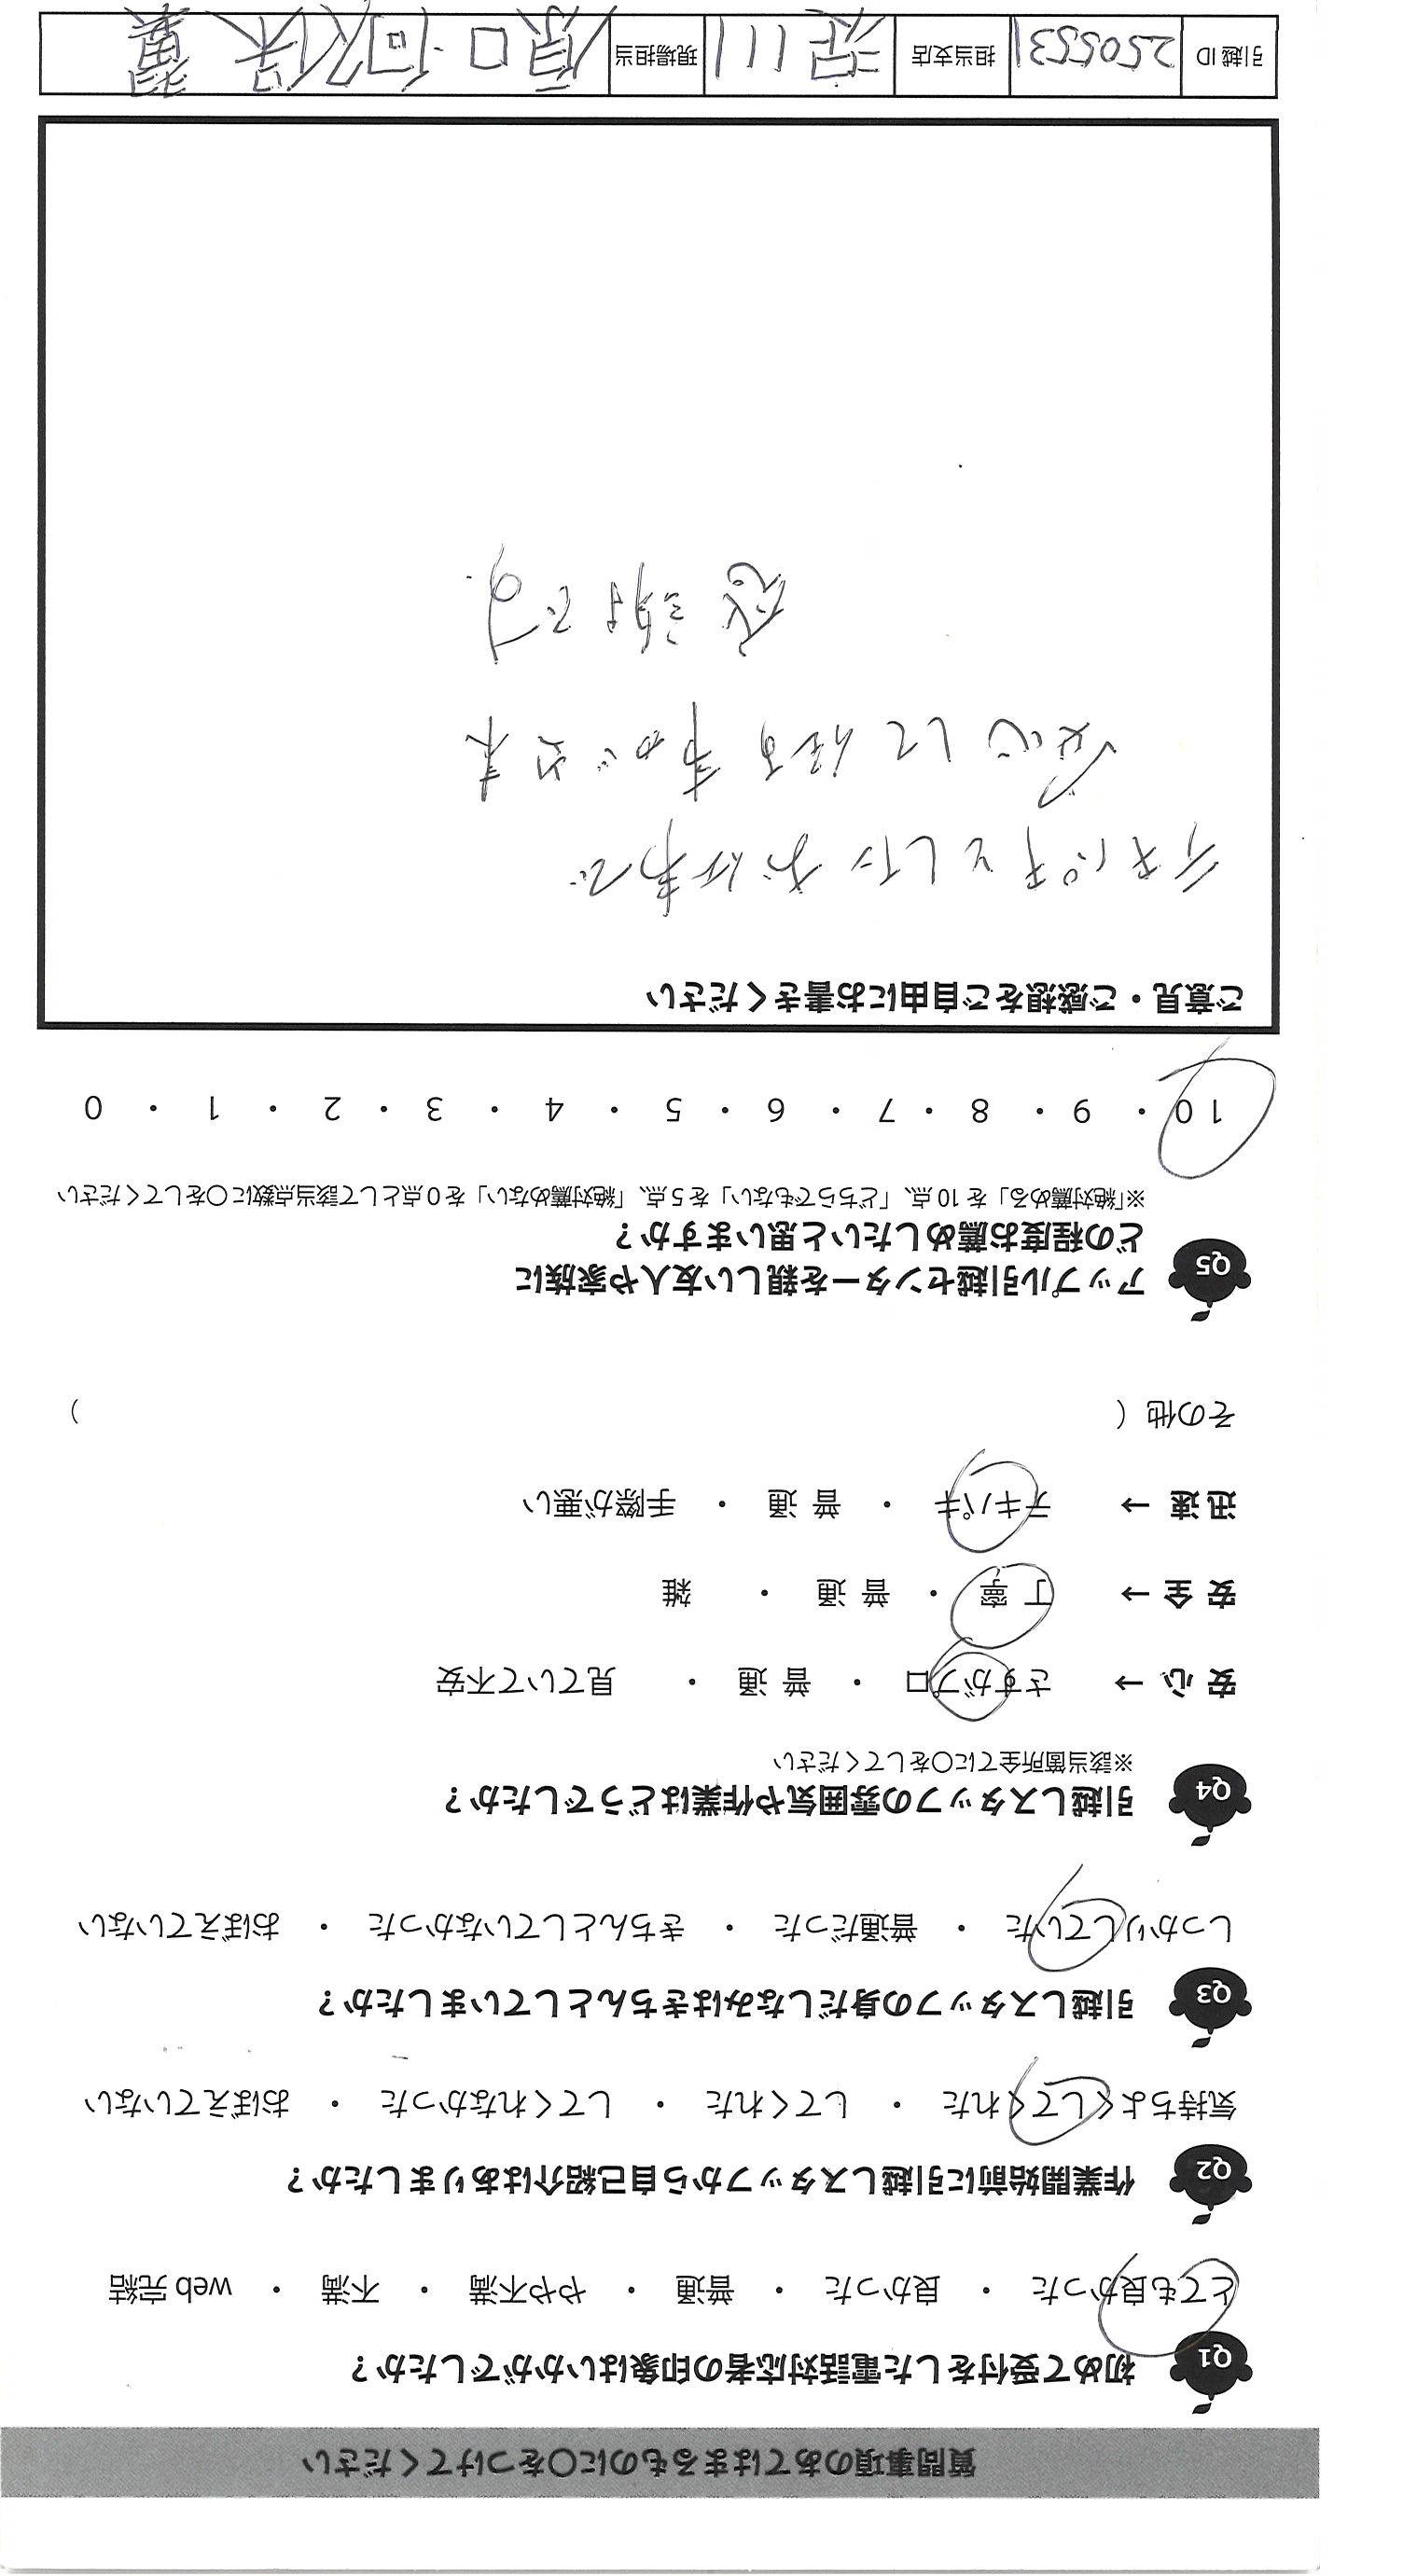 質問事項のあてはまるものに〇をつけてください
Q1 初めて受付をした電話対応者の印象はいかがでしたか?
とても良かった ・ 良かった ・ 普通 ・ やや不満 ・ 不満 ・ web 完結
Q2 作業開始前に引越しスタッフから自己紹介はありましたか?
気持ちよくしてくれた ・ してくれた ・ してくれなかった ・ おぼえていない
Q3 引越しスタッフの身だしなみはきちんとしていましたか?
しっかりしていた ・ 普通だった ・ きちんとしていなかった ・ おぼえていない
Q4 引越しスタッフの雰囲気や作業はどうでしたか?
※該当箇所全てに〇をしてください
安 心 → さすがプロ ・ 普 通 ・ 見ていて不安
安 全 → 丁 寧 ・ 普 通 ・ 雑
迅 速 → テキパキ ・ 普 通 ・ 手際が悪い
その他 ( )
Q5 アップル引越センターを親しい友人や家族に
どの程度お薦めしたいと思いますか?
※「絶対薦める」を 10 点、「どちらでもない」を 5 点、「絶対薦めない」を 0 点として該当点数に〇をしてください
10 ・ 9 ・ 8 ・ 7 ・ 6 ・ 5 ・ 4 ・ 3 ・ 2 ・ 1 ・ 0
ご意見・ご感想をご自由にお書きください
テキパキとしたお仕事で
安心して任る事が出来
感謝です。
引越 ID 2505531 担当支店 荒川 現場担当 原口 何 保 翼